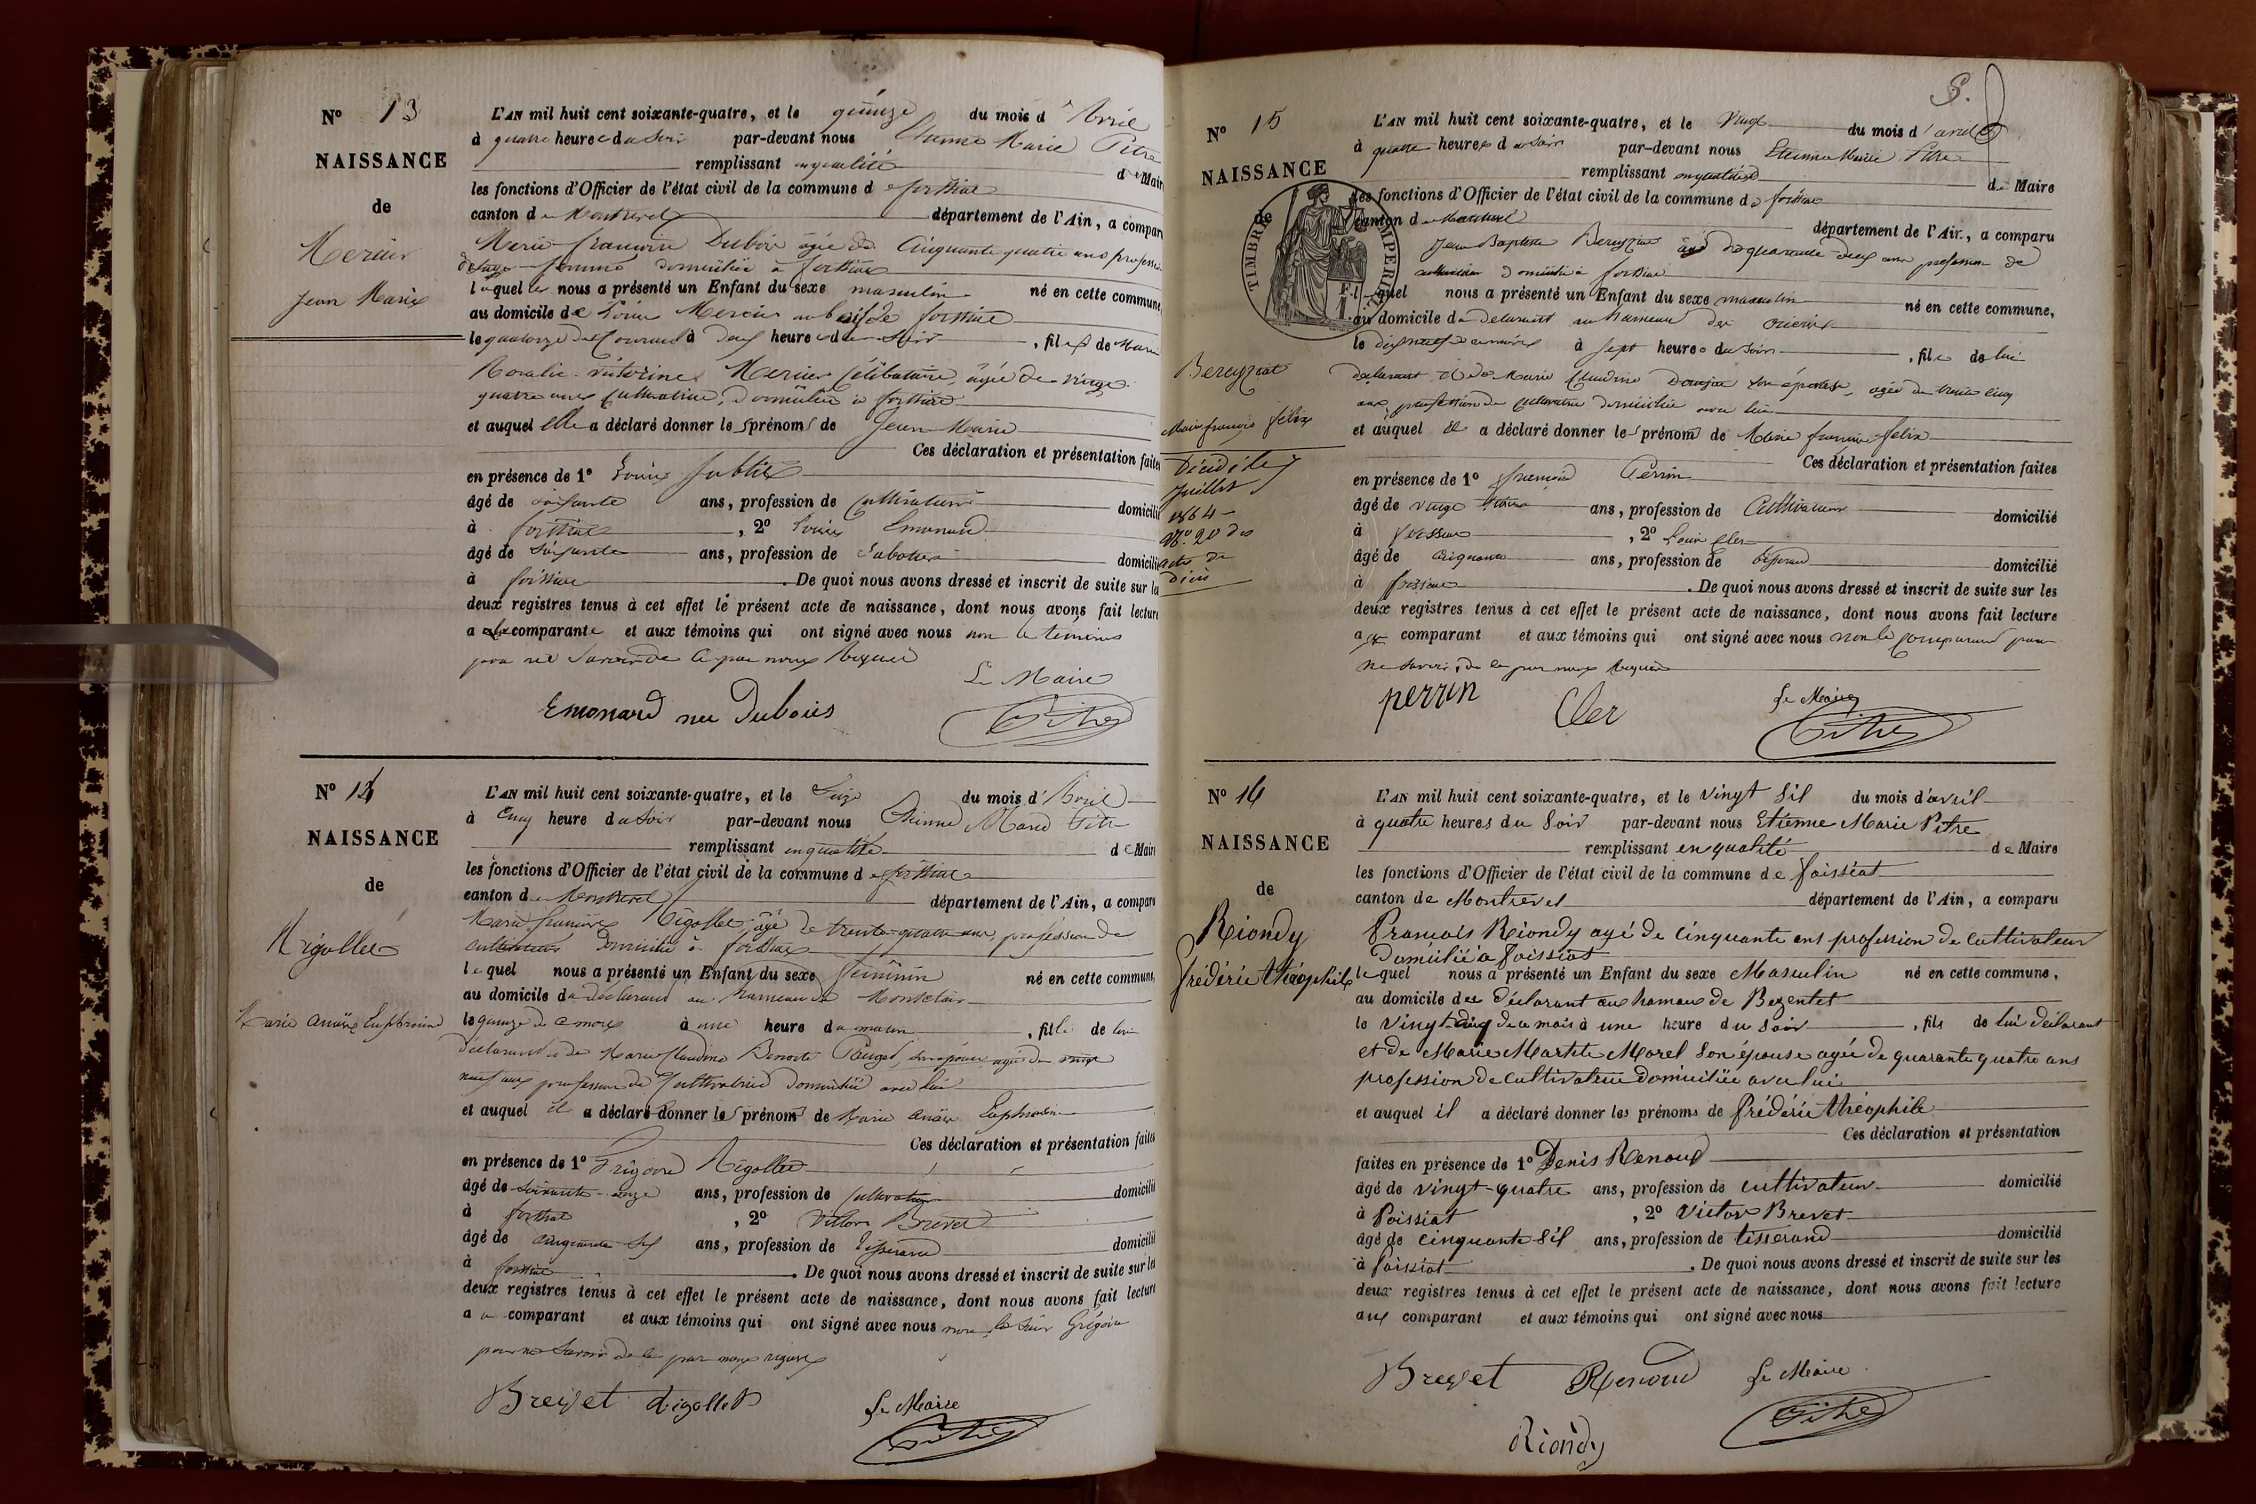 No 13
NAISSANCE
de
Mercier
Jean Marie
L'AN mil huit cent soixante-quatre, et le quinze du mois d'Avril
à quatre heures du soir par-devant nous Etienne Marie Pitre
remplissant en qualité de Maire
les fonctions d'Officier de l'état civil de la commune de foissiat
canton de Montrevel département de l'Ain, a comparu
Marie françoise Dubois âgée de Cinquante quatre ans profession
de sage-femme domiciliée à foissiat
laquelle nous a présenté un Enfant du sexe masculin né en cette commune,
au domicile de Louis Mercier au de foissiat
le quatorze du Courant à deux heures du soir, fils de Marie
Rosalie victorine Mercier Célibataire, âgée de vingt
quatre ans Cultivatrice, domiciliée à foissiat
et auquel elle a déclaré donner les prénoms de Jean Marie
Ces déclaration et présentation faites
en présence de 1o Louis
âgé de soixante ans, profession de Cultivateur domicilié
à foissiat, 2o Louis Emonard
âgé de soixante ans, profession de Sabotier domicilié
à foissiat. De quoi nous avons dressé et inscrit de suite sur les
deux registres tenus à cet effet le présent acte de naissance, dont nous avons fait lecture
a la comparante et aux témoins qui ont signé avec nous non le témoins
pour ne savoir de ce par nous Requis
Le Maire
Emonard née Dubois Pitre
No 14
NAISSANCE
de
Rigollet
Marie Euphrosine
L'AN mil huit cent soixante-quatre, et le Seize du mois d'Avril
à Cinq heure du soir par-devant nous Etienne Marie Pitre
remplissant en qualité de Maire
les fonctions d'Officier de l'état civil de la commune de foissiat
canton de Montrevel département de l'Ain, a comparu
Marie Rigollet âgé de trente-quatre ans, profession de
cultivateur domicilié à foissiat
lequel nous a présenté un Enfant du sexe féminin né en cette commune,
au domicile du déclarant au hameau de Montclair
le quinze de ce mois à une heure du matin, fille de lui
déclarant et de Marie Claudine Benoite son épouse agée de vingt
neuf ans profession de Cultivatrice domiciliée avec lui
et auquel il a déclaré donner les prénoms de Marie Euphrosine
Ces déclaration et présentation faites
en présence de 1o Grégoire Rigollet
âgé de soixante-onze ans, profession de cultivateur domicilié
à foissiat, 2o Victor Brevet
âgé de cinquante six ans, profession de tisserand domicilié
à foissiat. De quoi nous avons dressé et inscrit de suite sur les
deux registres tenus à cet effet le présent acte de naissance, dont nous avons fait lecture
a u comparant et aux témoins qui ont signé avec nous non le sieur Grégoire
pour ne savoir de ce par nous requis
Brevet Rigollet Le Maire
Pitre
No 15
NAISSANCE
de
TIMBRE IMPERIAL
Bereyziat
Marie françois félix
Décédé le 7
Juillet
1864
No 20 des
actes de
décès
L'AN mil huit cent soixante-quatre, et le Vingt du mois d'avril
à quatre heures du soir par-devant nous Etienne Marie Pitre
remplissant en qualité de Maire
les fonctions d'Officier de l'état civil de la commune de foissiat
canton de Montrevel département de l'Ain, a comparu
Jean Baptiste Bereyziat âgé de quarante deux ans profession de
cultivateur domicilié à foissiat
lequel nous a présenté un Enfant du sexe masculin né en cette commune,
au domicile du déclarant au hameau des
le dix neuf de ce mois à sept heures du soir, fils de lui
déclarant et de Marie Claudine son épouse, agée de trente cinq
ans profession de Cultivatrice domiciliée avec lui
et auquel il a déclaré donner les prénoms de Marie françois felix
Ces déclaration et présentation faites
en présence de 1o françois Perrin
âgé de vingt ans, profession de Cultivateur domicilié
à foissiat, 2o Louis Cler
âgé de cinquante ans, profession de tisserand domicilié
à foissiat. De quoi nous avons dressé et inscrit de suite sur les
deux registres tenus à cet effet le présent acte de naissance, dont nous avons fait lecture
au comparant et aux témoins qui ont signé avec nous non le comparant pour
ne savoir, de ce par nous Requis
perrin Cler Le Maire
Pitre
No 16
NAISSANCE
de
Riondy
frédéric théophile
L'AN mil huit cent soixante-quatre, et le vingt six du mois d'avril
à quatre heures du soir par-devant nous Etienne Marie Pitre
remplissant en qualité de Maire
les fonctions d'Officier de l'état civil de la commune de foissiat
canton de Montrevel département de l'Ain, a comparu
François Riondy agé de cinquante ans profession de cultivateur
domicilié à foissiat
lequel nous a présenté un Enfant du sexe Masculin né en cette commune,
au domicile du déclarant au hameau de Bezentet
le vingt-cinq de ce mois à une heure du soir, fils de lui déclarant
et de Marie Marthe Morel son épouse agée de quarante quatre ans
profession de cultivateur domiciliée avec lui
et auquel il a déclaré donner les prénoms de frédéric théophile
Ces déclaration et présentation
faites en présence de 1o Denis Renoud
âgé de vingt-quatre ans, profession de cultivateur domicilié
à foissiat, 2o Victor Brevet
âgé de cinquante six ans, profession de tisserand domicilié
à foissiat. De quoi nous avons dressé et inscrit de suite sur les
deux registres tenus à cet effet le présent acte de naissance, dont nous avons fait lecture
aux comparant et aux témoins qui ont signé avec nous
Brevet Renoud Le Maire
Pitre
Riondy